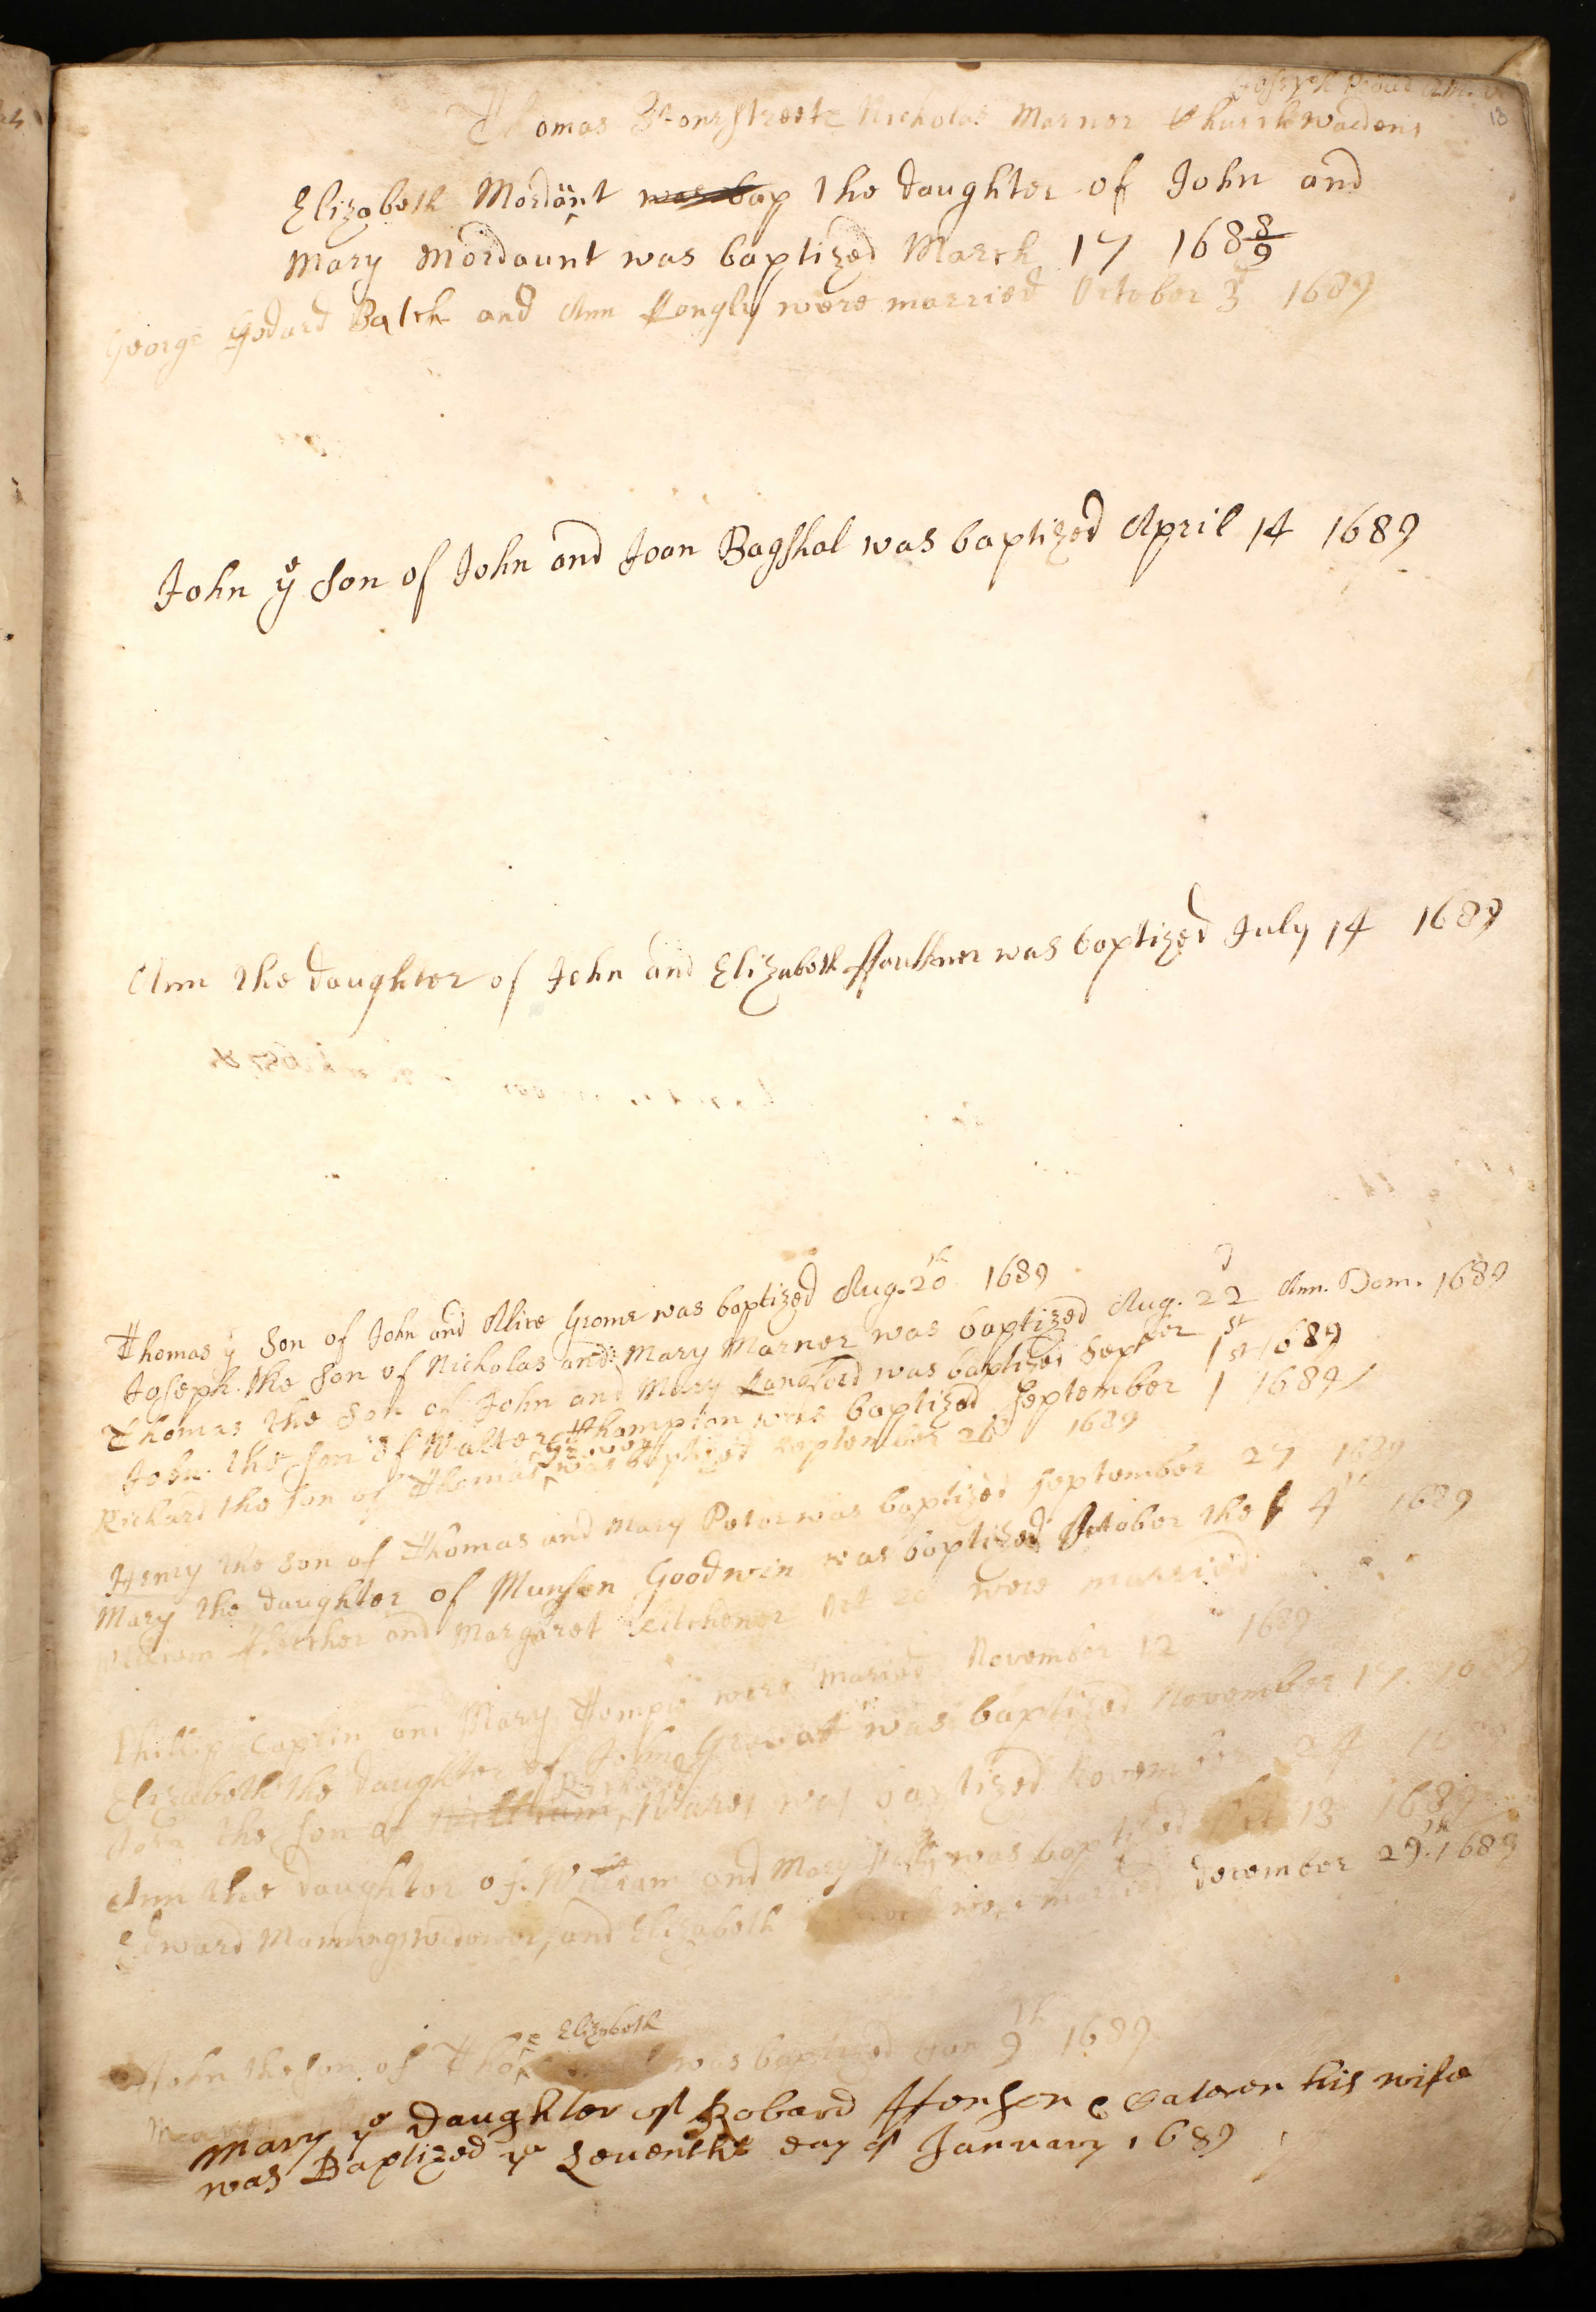 Joseph
13
Thomas Stonestreete Nicholas Marner Churchwardens
Elizabeth Mordant was bap the daughter of John and
Mary Mordaunt was baptized March 17 168 8/9
George Godard Balch and Ann Longly were married October 3 1689
John ye son of John and Joan Bagshal was baptized April 14 1689
Ann the daughter of John and Elizabeth ffaulkner was baptized July 14 1689
Thomas ye Son of John and Allice Grome was baptized Aug. 20th 1689
Joseph the Son of Nicholas and Mary Marner was baptized Aug. 22d Ann. Dom. 1689
Thomas the Son of John and Mary Langford was baptized Septber 1st 1689
John the Son of Walter Thompton was baptized September 1st 1689
Richard the son of Thomas was baptized September 26 1689
Henry the Son of Thomas and Mary Peter was baptized September 27 1689
Mary the daughter of Munson Goodwin was baptized October the 4th 1689
William and Margaret Kitchener Oct 20 were married
Phillip Caplin and Mary were maried November 12 1689
Elizabeth the daughter of John was baptized November 17
John the Son of William Richard was baptized November 24
Ann the daughter of William and Mary was baptized 13 1689
Edward Manning widower, and Elizabeth were married December 29th 1689
John the Son of Tho Elizabeth was baptized Jan 9th 1689
Mary ye Daughter of Robard Henson & Cateren his wife
was Baptized ye Seventh day of January 1689